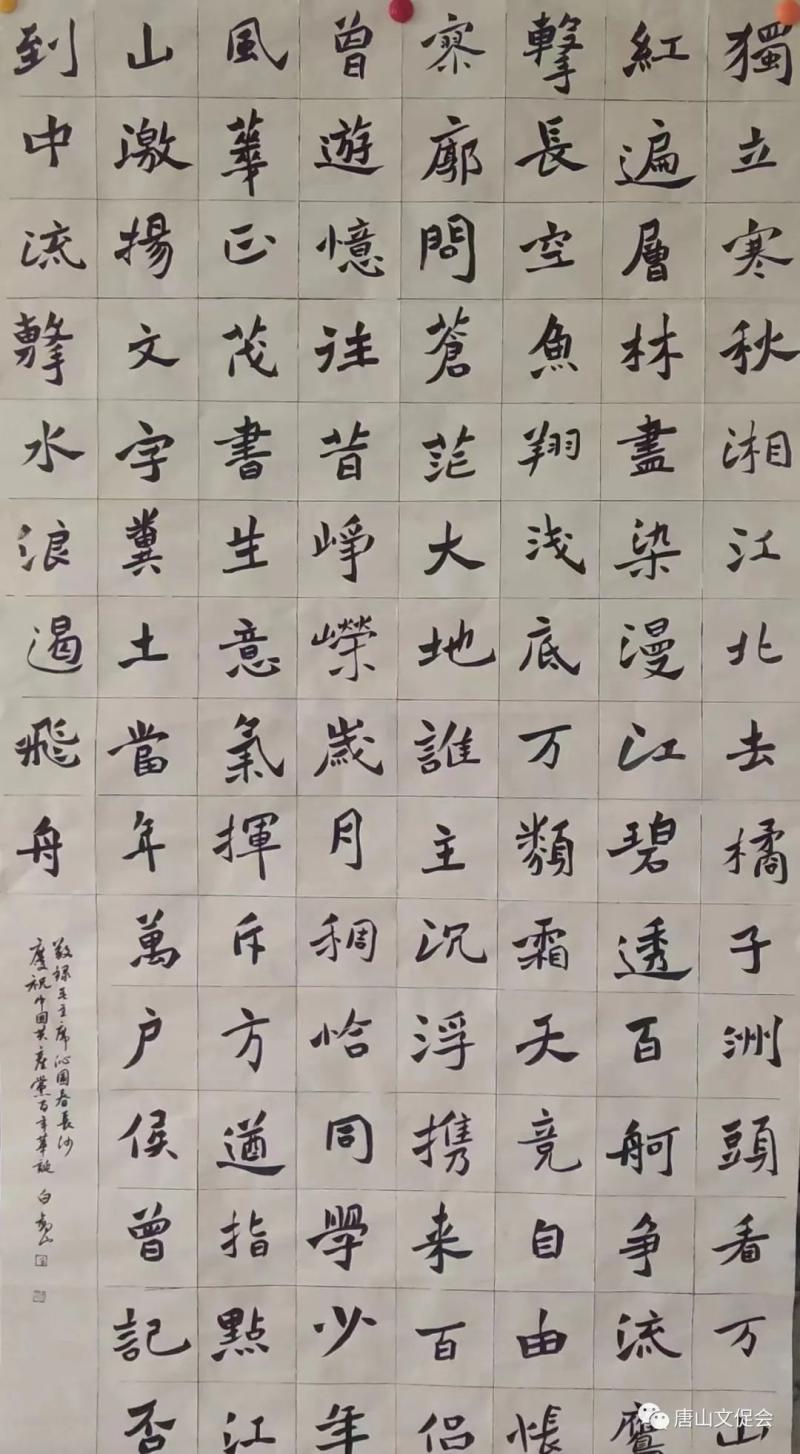 獨立寒秋湘江北去橘子洲頭看万山
紅遍層林盡染漫江碧透百舸争流鷹
擊長空魚翔浅底万類霜天竞自由悵
寥廓問蒼茫大地誰主沉浮携来百侣
曾遊憶往昔崢嶸歲月稠恰同學少年
風華正茂書生意氣揮斥方遒指點江
山激揚文字糞土當年萬户侯曾記否
到中流擊水浪遏飛舟
敬録毛主席沁園春長沙
慶祝中国共産黨百年華誕 白
唐山文促会